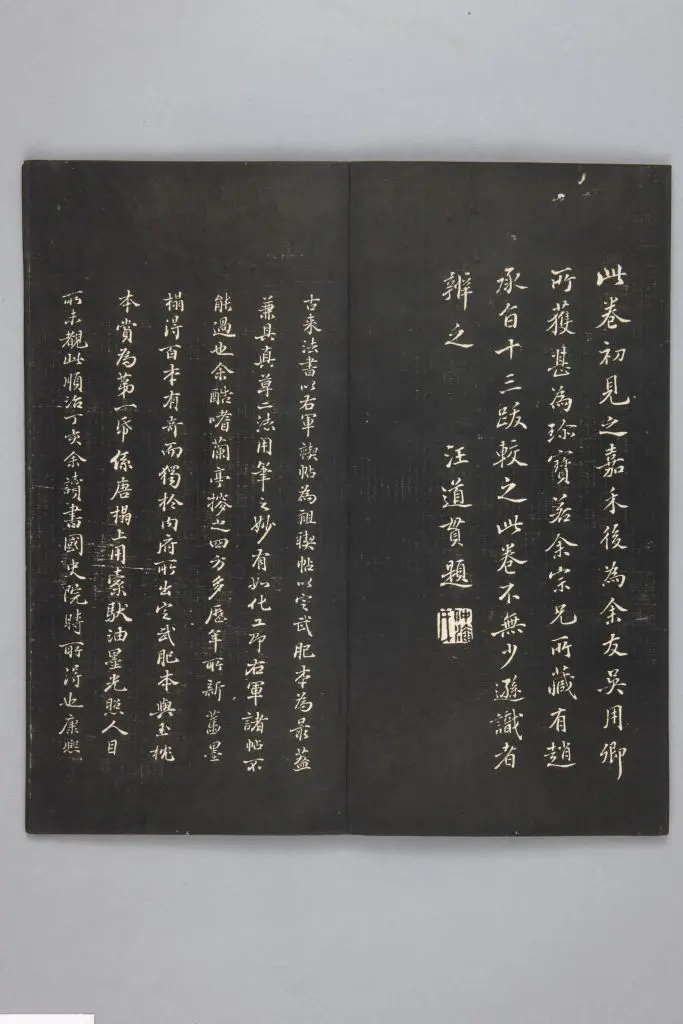 此卷初見之嘉禾後為余友吳用卿
所獲甚為珍寶若余宗兄所藏有趙
承旨十三跋較之此卷不無少遜識者
辨之 汪道貫題
古來法書以右軍禊帖為祖禊帖以定武肥本為最蓋
兼具真草二法用筆之妙有如化工即右軍諸帖不
能過也余酷嗜蘭亭擬之四方多歷年所新舊墨
榻得百本有奇而獨於內府所出定武肥本與玉枕
本賞為第一帋係唐榻上用索馱油墨光照人目
所未觀此順治丁亥余讀書國史院時所得也康熙